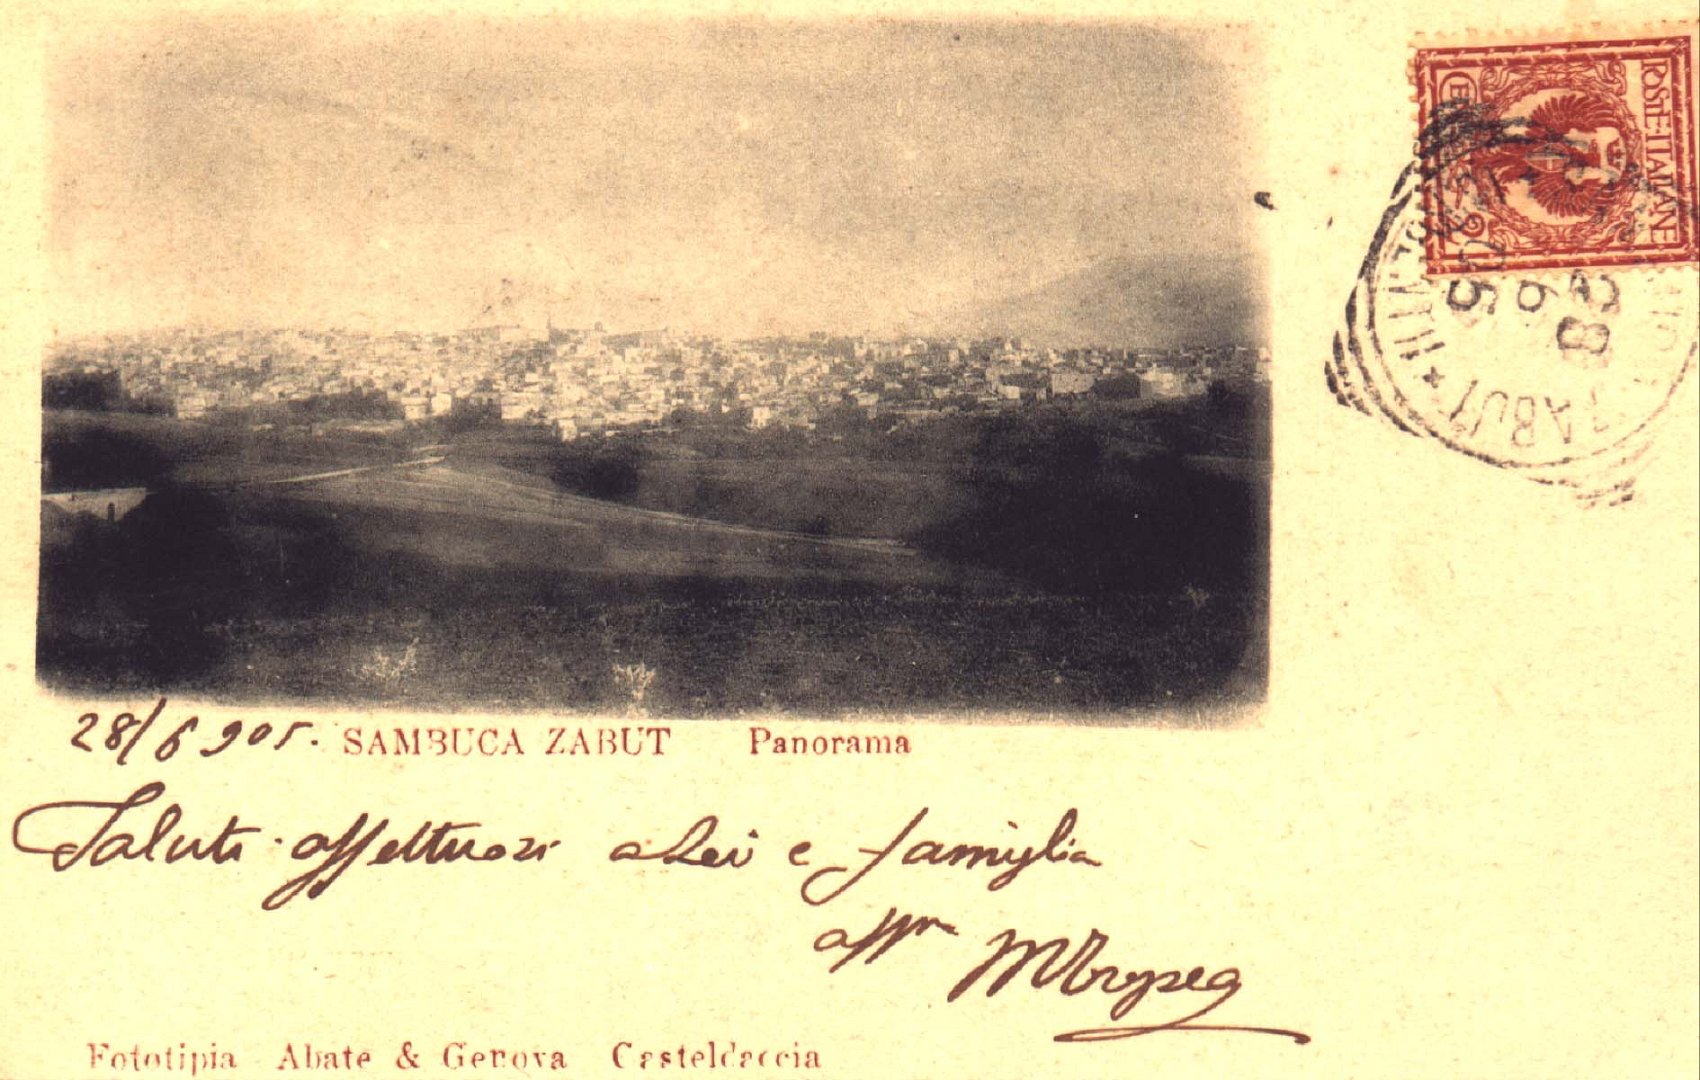 POSTE ITALIANE
28
6
05
ZABUT
28/6 905.
SAMBUCA ZABUT Panorama
Saluti affettuosi a Lei e famiglia
affm
Fototipia Abate & Genova Casteldaccia